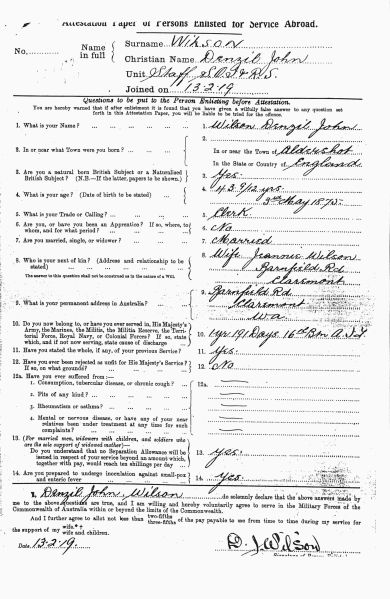 Attestation Paper of Persons Enlisted for Service Abroad.
No.
Name in full
Surname Wilson
Christian Name Denzil John
Unit Staff
Joined on 13.2.19
Questions to be put to the Person Enlisting before Attestation.
You are hereby warned that if after enlistment it is found that you have given a wilfully false answer to any question set
forth in this Attestation Paper, you will be liable to be tried for the offence.
1. What is your Name? 1. Wilson Denzil John
2. In or near what Town were you born? 2. In or near the Town of Aldershot
In the State or Country of England
3. Are you a natural born British Subject or a Naturalised
British Subject? (N.B.—If the latter, papers to be shown.) 3. Yes.
4. What is your age? (Date of birth to be stated) 4. 43 9/12 yrs.
3rd May 1875.
5. What is your Trade or Calling? 5. Clerk
6. Are you, or have you been an Apprentice? If so, where, to
whom, and for what period? 6. No
7. Are you married, single, or widower? 7. Married
8. Who is your next of kin? (Address and relationship to be
stated) 8. Wife Jeannie Wilson
Rd
Claremont
The answer to this question shall not be construed as in the nature of a Will.
9. What is your permanent address in Australia? 9. Rd
Claremont
W.A
10. Do you now belong to, or have you ever served in, His Majesty's
Army, the Marines, the Militia, the Militia Reserve, the Terri-
torial Force, Royal Navy, or Colonial Forces? If so, state
which, and if not now serving, state cause of discharge 10. 1 yr 191 Days 16th Bn A.I.F
11. Have you stated the whole, if any, of your previous Service? 11. Yes.
12. Have you ever been rejected as unfit for His Majesty's Service?
If so, on what grounds? 12. No
12a. Have you ever suffered from:— 12a.
1. Consumption, tubercular disease, or chronic cough?
2. Fits of any kind?
3. Rheumatism or asthma?
4. Mental or nervous disease, or have any of your near
relatives been under treatment at any time for such
complaints?
13. (For married men, widowers with children, and soldiers who
are the sole support of widowed mother)—
Do you understand that no Separation Allowance will be
issued in respect of your service beyond an amount which
together with pay, would reach ten shillings per day 13. Yes.
14. Are you prepared to undergo inoculation against small-pox
and enteric fever 14. Yes.
I, Denzil John Wilson do solemnly declare that the above answers made by
me to the above questions are true, and I am willing and hereby voluntarily agree to serve in the Military Forces of the
Commonwealth of Australia within or beyond the limits of the Commonwealth.
And I further agree to allot not less than two-fifths three-fifths of the pay payable to me from time to time during my service for
the support of my wife* wife and children.
Date 13.2.19. D. J. Wilson